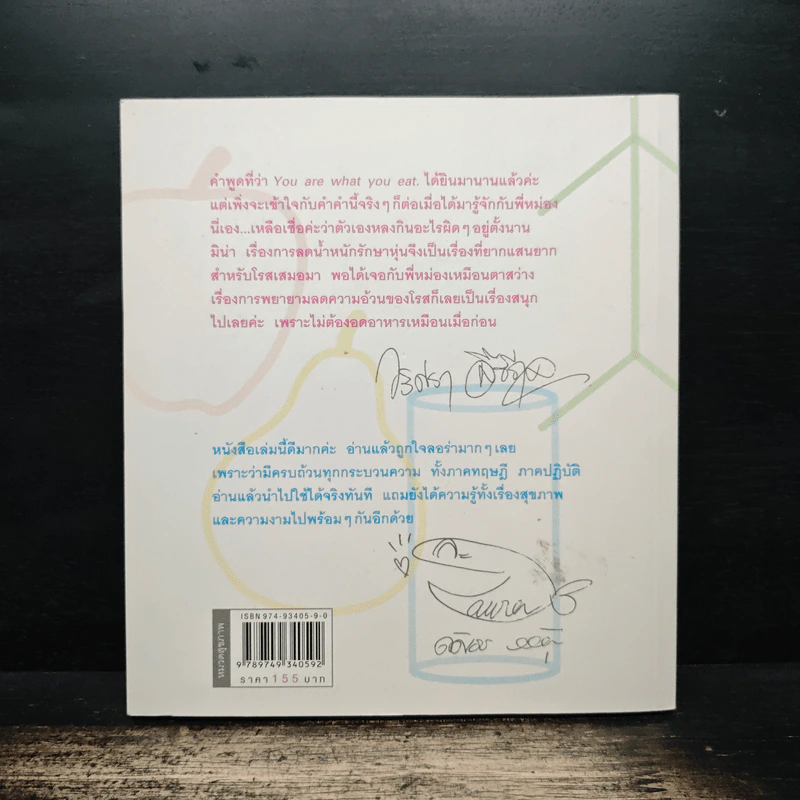 คำพูดที่ว่า You are what you eat. ได้ยินมานานแล้วค่ะ
แต่เพิ่งจะเข้าใจกับคำคำนี้จริงๆ ก็ต่อเมื่อได้มารู้จักกับพี่หม่อง
นี่เอง...เหลือเชื่อค่ะว่าตัวเองหลงกินอะไรผิดๆ อยู่ตั้งนาน
มิน่า เรื่องการลดน้ำหนักรักษาหุ่นจึงเป็นเรื่องที่ยากแสนยาก
สำหรับโรสเสมอมา พอได้เจอกับพี่หม่องเหมือนตาสว่าง
เรื่องการพยายามลดความอ้วนของโรสก็เลยเป็นเรื่องสนุก
ไปเลยค่ะ เพราะไม่ต้องอดอาหารเหมือนเมื่อก่อน
หนังสือเล่มนี้ดีมากค่ะ อ่านแล้วถูกใจลอร่ามากๆ เลย
เพราะว่ามีครบถ้วนทุกกระบวนความ ทั้งภาคทฤษฎี ภาคปฏิบัติ
อ่านแล้วนำไปใช้ได้จริงทันที แถมยังได้ความรู้ทั้งเรื่องสุขภาพ
และความงามไปพร้อมๆ กันอีกด้วย
ISBN 974-93405-9-0
9 789749 340592
ราคา 155 บาท